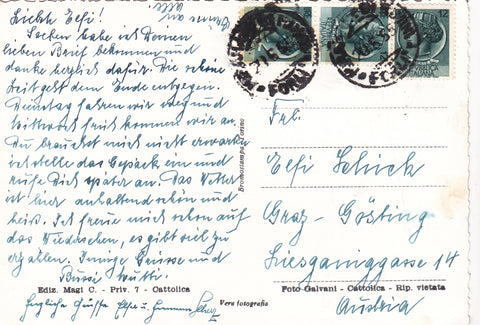 Liebste Elfi!
Soeben habe ich Deinen
lieben Brief bekommen und
danke herzlich dafür. Die schöne
Zeit geht dem Ende entgegen.
Dienstag fahren wir weg und
Mittwoch früh kommen wir an.
Du brauchst mich nicht erwarten
ich stelle das Gepäck ein und
rufe Dich später an. Das Wetter
ist hier anhaltend schön und
heiß. Ich freue mich schon auf
das Wiedersehen, es gibt viel zu
erzählen. Innige Grüsse und
Bussi Mutti.
Grüsse an
alle
Ediz. Magi C. - Priv. 7 - Cattolica
Herzliche Grüße
Vera fotografia
Bromostampa - Torino
12
Frl.
Elfi Schick
Graz-Gösting
14
Foto Galvani - Cattolica - Rip. vietata
Austria